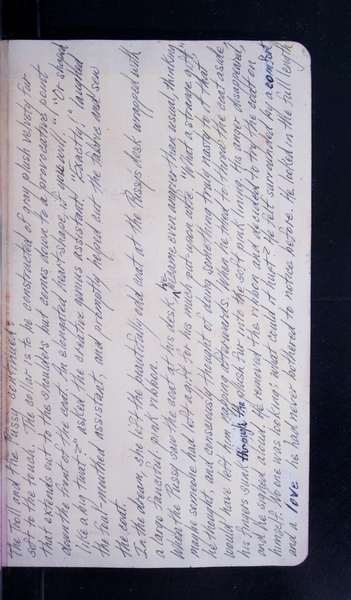 The Troll and the Pussy continued:
soft to the touch. The collar is to be constructed of gray plush velvety fur
that extends out to the shoulders but comes down to a provocative point
down the front of the coat. An elongated heart-shape, if you will." "Or shaped
like a big twat?" asked the creative wives assistant. "Exactly," laughed
the foul-mouthed assistant, and promptly helped cut the fabric and sew
the coat.
In the dream, she left the beautifully odd coat at the Pussy's desk wrapped with
a large fanciful pink ribbon.
When the Pussy saw the coat at his desk, he became even angrier than usual, thinking
maybe someone had left a gift for his much put-upon wife. "What a strange gift,"
he thought and consciously thought of doing something truly nasty to it that
would have left them gasping afterwards. When he tried to throw the coat aside,
his fingers sunk through the plush fur into the soft pink lining. His anger disappeared,
and he sighed aloud. He removed the ribbon and decided to try the coat on
himself. No one was looking; what could it hurt? He felt surrounded by a comfort
and a love he had never bothered to notice before. He looked in the full length